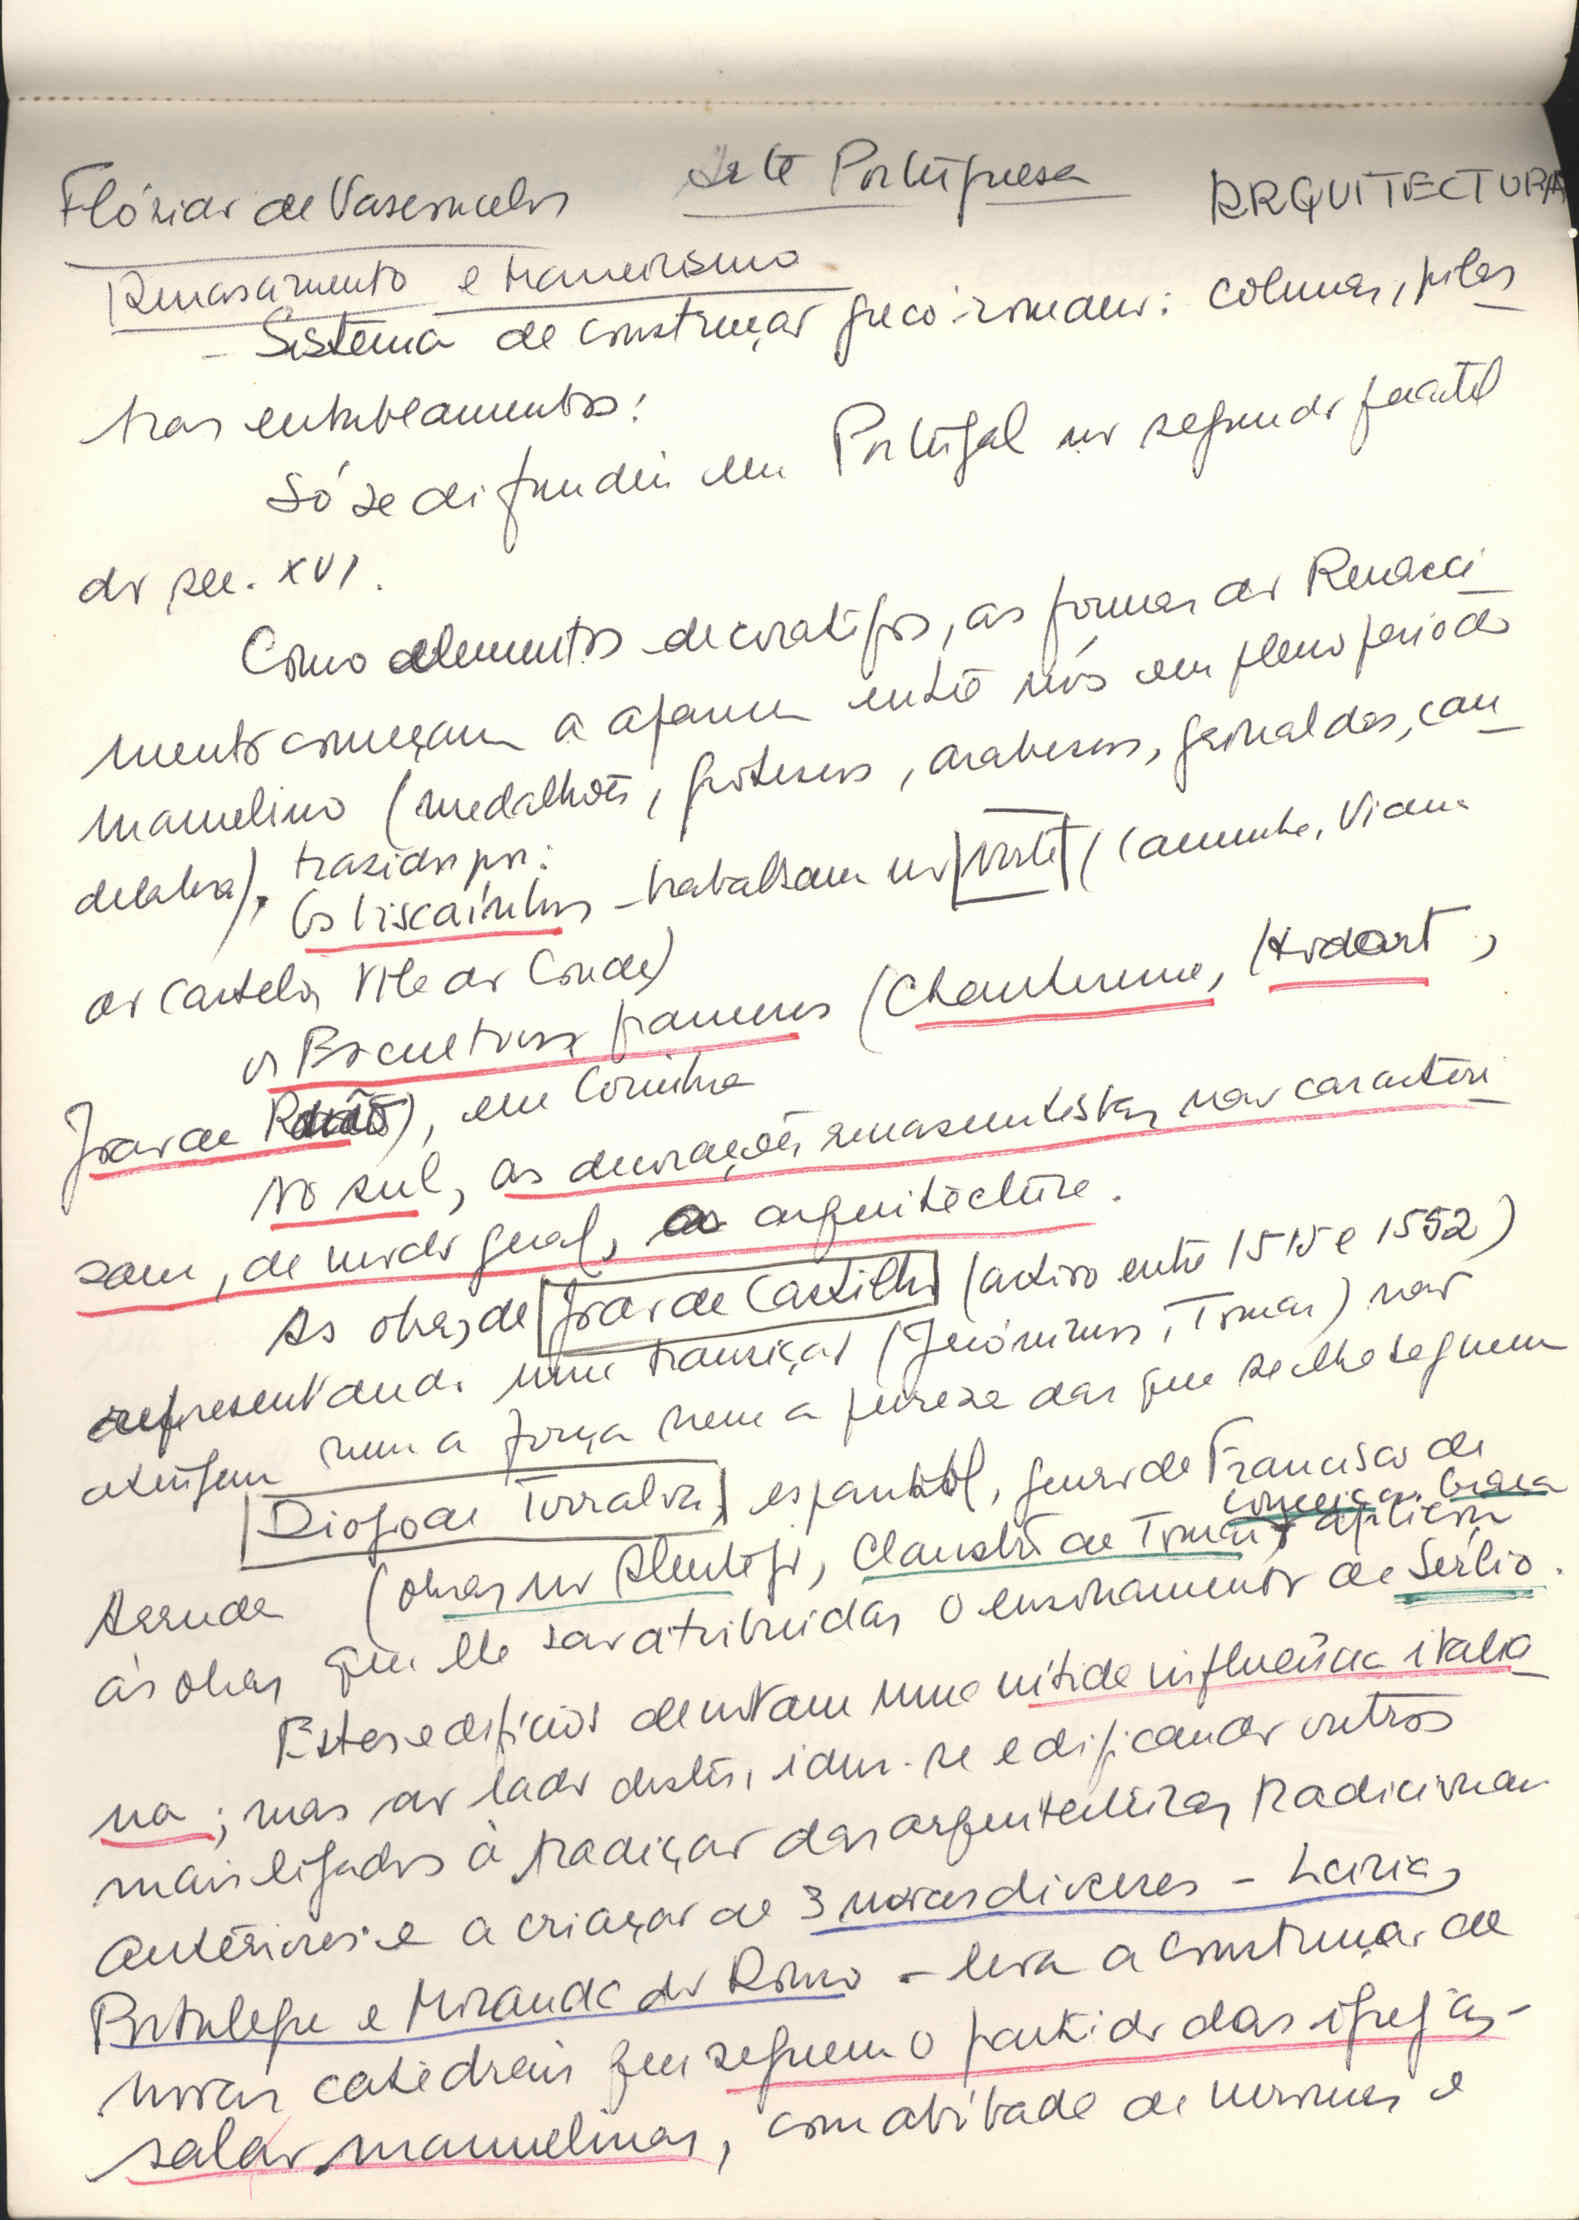 Flórido de Vasconcelos Arte Portuguesa ARQUITECTURA
Renascimento e Maneirismo
- Sistema de construção greco-romano: colunas, pilas
tras entablamentos:
Só se difundiu em Portugal no segundo quartel
do séc. XVI.
Como elementos decorativos, as formas do Renasci
mento começam a aparecer entre nós em pleno período
manuelino (medalhões, grotescos, arabescos, grinaldas, can
delabra), trazidos por:
Os biscaínhos - trabalham no Norte (Caminha, Viana
do Castelo, Vila do Conde)
os Escultores franceses (Chanterenne, Hodart,
João de Ruão), em Coimbra
No sul, as decorações renascentistas não caracteri
zam, de modo geral, as arquitecture.
As obras de João de Castilho (activo entre 1515 e 1552)
representando uma transição (Jerónimos, Tomar) não
atingem nem a força nem a pureza das que se lhe seguem
Diogo de Torralva, espanhol, genro de Francisco de
Conceição. Graça
Arruda (obras no Alentejo, Claustro de Tomar) aplicou
às obras que lhe são atribuidas o ensinamento de Serlio.
Estes edifícios denotam uma nítida influência italia
na; mas ao lado destes, iam-se edificando outros
mais ligados à tradição das arquitecturas tradicionais
anteriores e a criação de 3 novas dioceses - Leiria,
Portalegre e Miranda do Douro - leva a construção de
novas catedrais que seguem o partido das igrejas-
salão manuelinas, com abóbada de nervuras e